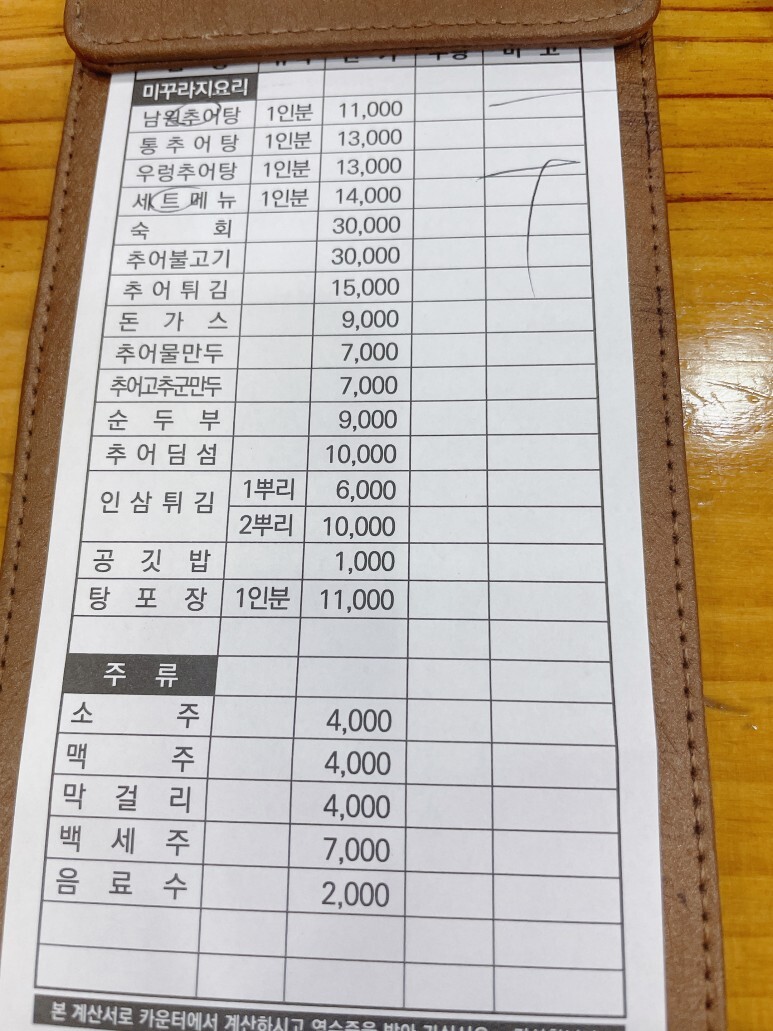 미꾸라지요리
남원추어탕 1인분 11,000
통추어탕 1인분 13,000
우렁추어탕 1인분 13,000
세트메뉴 1인분 14,000
숙회 30,000
추어불고기 30,000
추어튀김 15,000
돈가스 9,000
추어물만두 7,000
추어고추군만두 7,000
순두부 9,000
추어딤섬 10,000
인삼튀김 1뿌리 6,000
2뿌리 10,000
공깃밥 1,000
탕포장 1인분 11,000
주류
소주 4,000
맥주 4,000
막걸리 4,000
백세주 7,000
음료수 2,000
본 계산서로 카운터에서 계산하시고 영수증을 받아